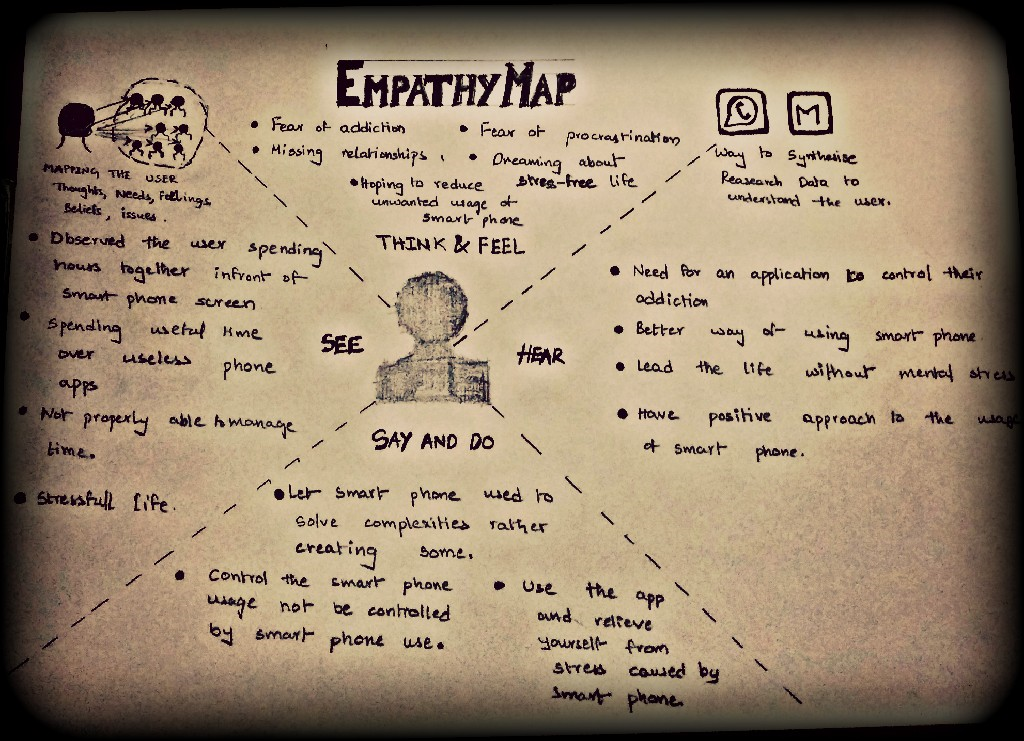 EMPATHY MAP
MAPPING THE USER
Thoughts, Needs, Feelings,
Beliefs, issues.
• Fear of addiction
• Fear of procrastination
• Missing relationships,
• Dreaming about
stress-free life
• Hoping to reduce
unwanted usage of
smart phone
THINK & FEEL
M
Way to Synthesise
Reasearch Data to
understand the user.
• Observed the user spending
hours together infront of
smart phone screen
• Spending useful time
over useless phone
apps
• Not properly able to manage
time.
• Stressfull life.
SEE
HEAR
• Need for an application to control their
addiction
• Better way of using smart phone
• Lead the life without mental stress
• Have positive approach to the usage
of smart phone.
SAY AND DO
• Let smart phone used to
solve complexities rather
creating some.
• Control the smart phone
usage not be controlled
by smart phone use.
• Use the app
and relieve
yourself from
stress caused by
smart phone.